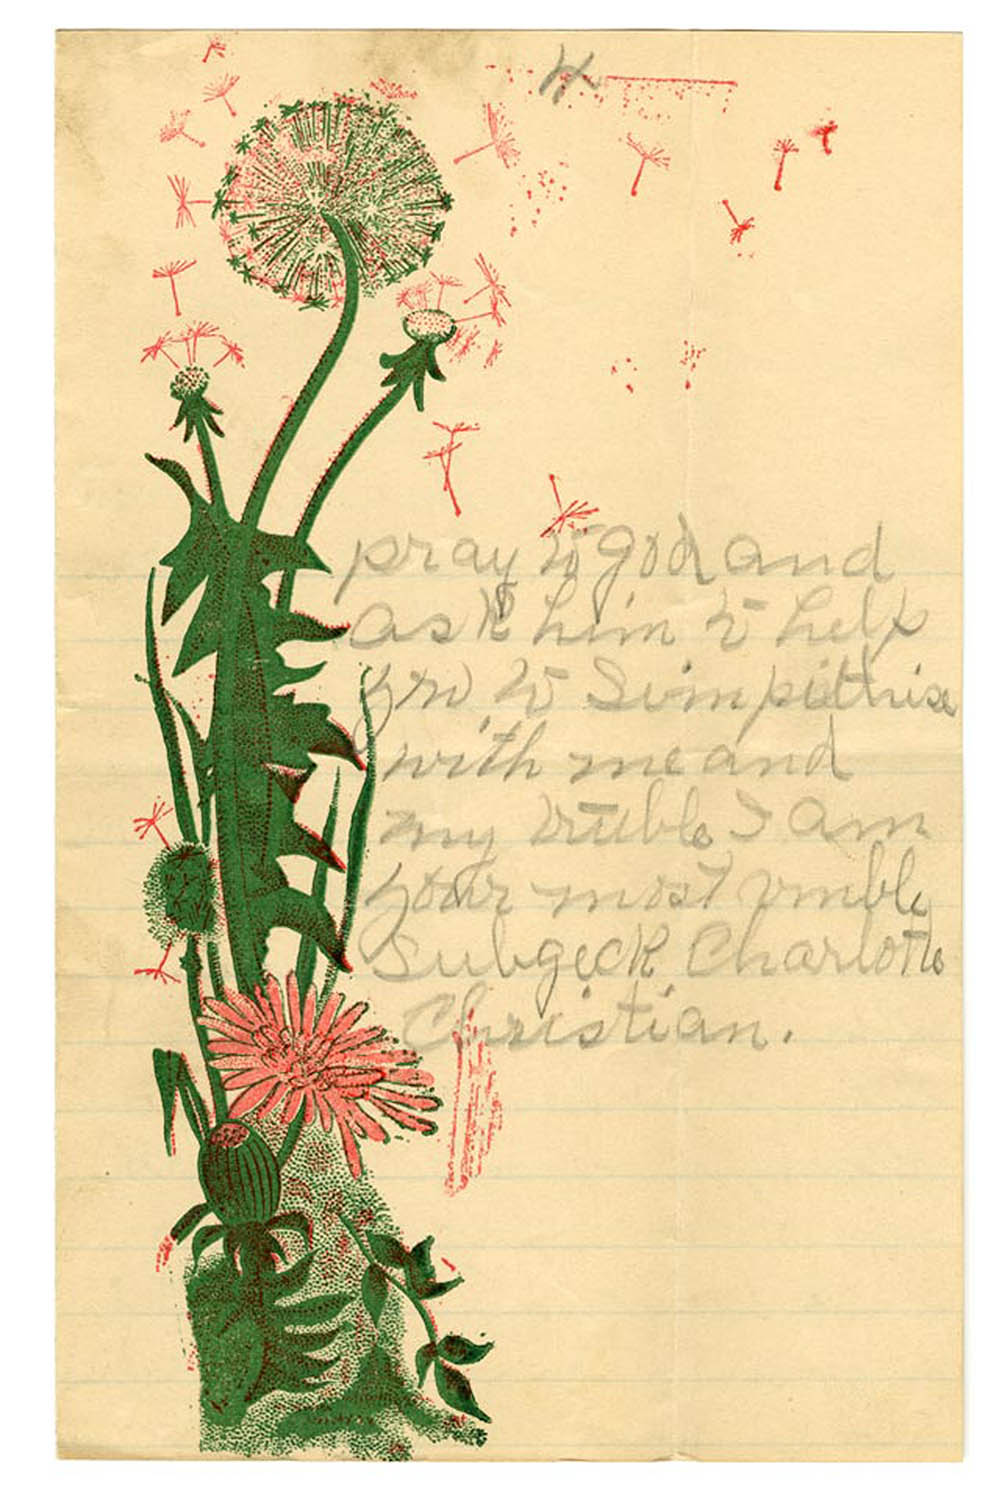 4
pray to god and
ask him to help
yro to Simpithise
with me and
my truble I am
your most vmble
Subgeck Charlotte
Christian.